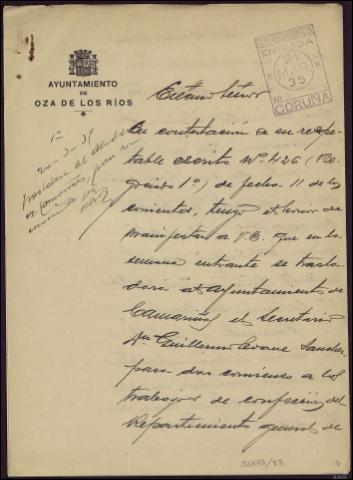 AYUNTAMIENTO
DE
OZA DE LOS RÍOS
ENTRADA
21
MAR
35
CORUÑA
Excmo Señor
En contestación a su respe-
table escrito Nº 426 (Ne-
gociado 1º) de fecha 11 de los
corrientes, tengo el honor de
manifestar a V.E. que en la
semana entrante se trasla-
dará al Ayuntamiento de
Camariñas el Secretario
Dn Guillermo Seoane Sanchez
para dar comienzo a los
trabajos de confección del
Repartimiento general de
1º
20-3-35
Traslado al Alcalde
de Camariñas, para su